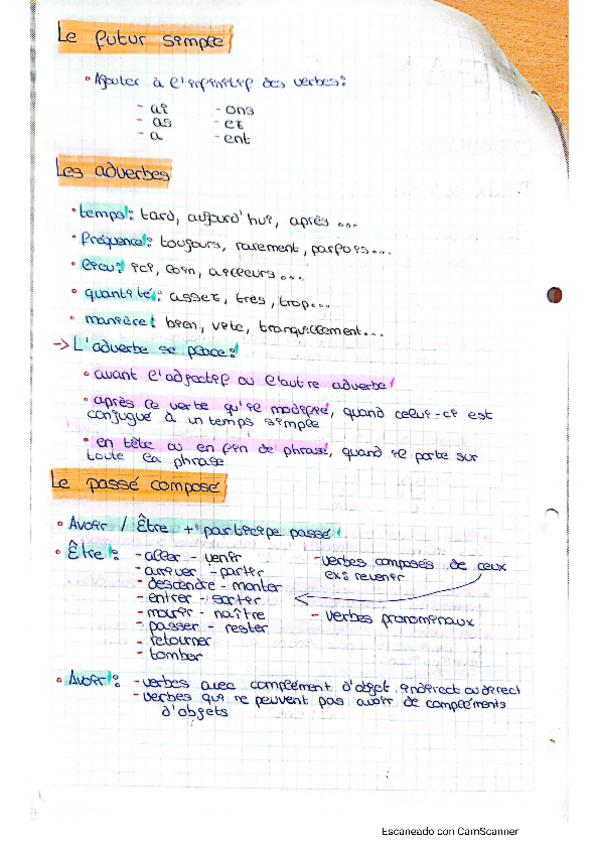 Le futur simple
• Ajouter à l'infinitif des verbes:
- ai - ons
- as - ez
- a - ent
Les adverbes
• temps: tard, aujourd'hui, après ...
• Fréquence: toujours, rarement, parfois...
• Lieu: ici, loin, ailleurs...
• quantité: assez, très, trop...
• manière: bien, vite, tranquillement...
-> L'adverbe se place:
• avant l'adjectif ou l'autre adverbe
• après le verbe qu'il modifie, quand celui-ci est
conjugué à un temps simple
• en tête ou en fin de phrase, quand il porte sur
toute la phrase
Le passé composé
• Avoir / Être + participe passé
• Être: - aller - venir
- arriver - partir
- descendre - monter
- entrer - sortir
- mourir - naître
- passer - rester
- retourner
- tomber
- verbes composés de ceux
ex: revenir
- verbes pronominaux
• Avoir: - verbes avec complément d'objet indirect ou direct
- verbes qui ne peuvent pas avoir de compléments
d'objets
Escaneado con CamScanner